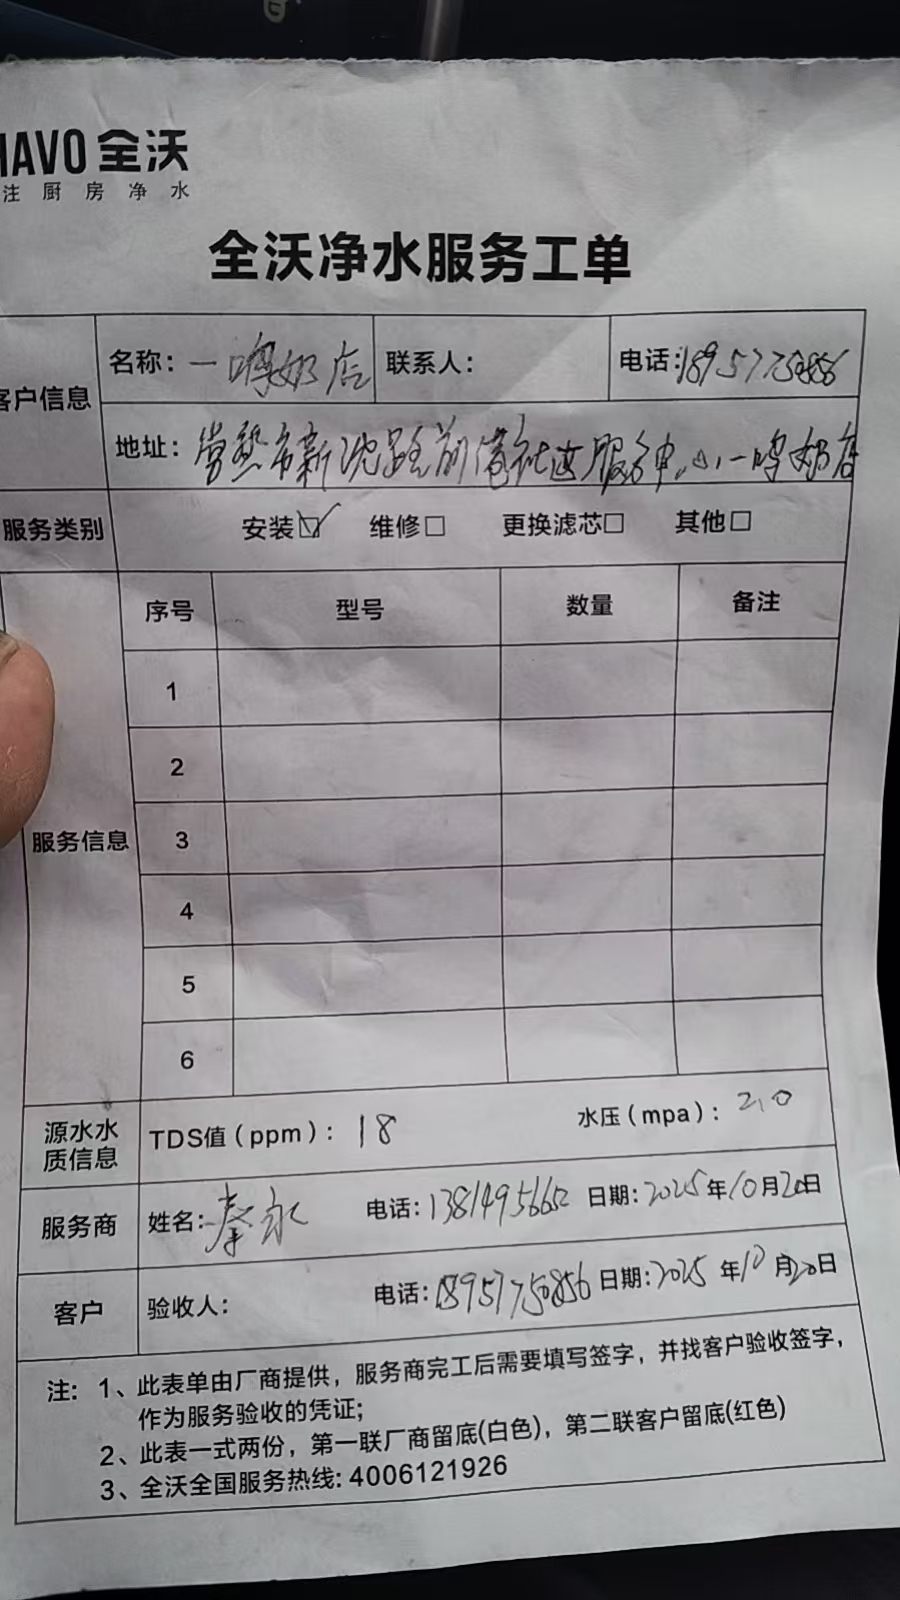 HAVO 全沃
注厨房净水
全沃净水服务工单
客户信息
名称：一鸣奶店 联系人： 电话：18957750856
地址：常熟市新沈路前 社 服务中心一鸣奶店
服务类别 安装☑ 维修□ 更换滤芯□ 其他□
服务信息
序号 型号 数量 备注
1
2
3
4
5
6
源水水质信息 TDS值（ppm）：18 水压（mpa）：2.0
服务商 姓名：秦永 电话：13814956652 日期：2025年10月20日
客户 验收人： 电话：18957750856 日期：2025年10月20日
注：1、此表单由厂商提供，服务商完工后需要填写签字，并找客户验收签字，
作为服务验收的凭证；
2、此表一式两份，第一联厂商留底(白色)，第二联客户留底(红色)
3、全沃全国服务热线：4006121926